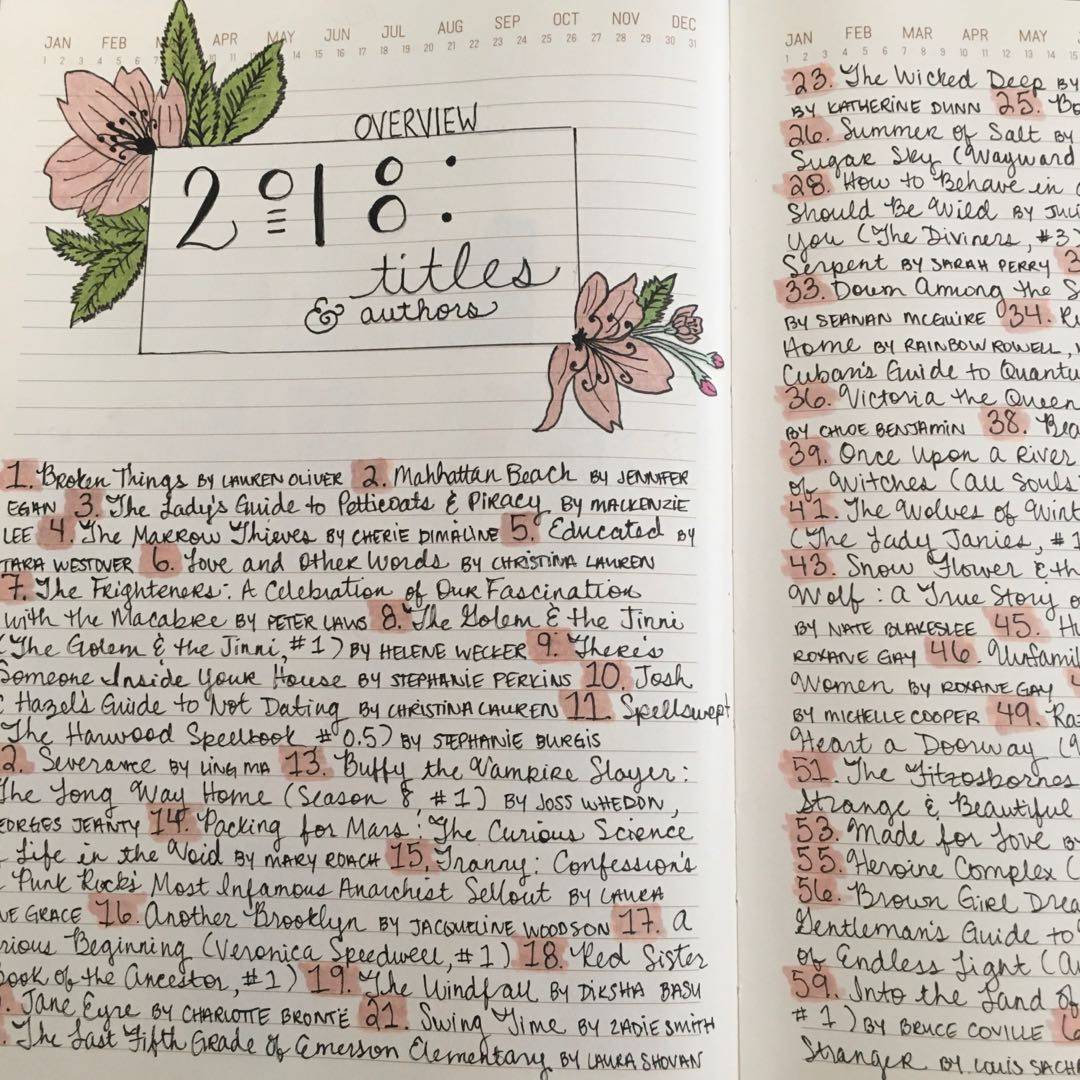 JAN FEB APR MAY JUN JUL AUG SEP OCT NOV DEC
OVERVIEW
2018:
titles
& authors
1. Broken Things BY LAUREN OLIVER 2. Manhattan Beach BY JENNIFER
EGAN 3. The Lady's Guide to Petticoats & Piracy BY MACKENZIE
LEE 4. The Marrow Thieves BY CHERIE DIMALINE 5. Educated BY
TARA WESTOVER 6. Love and Other Words BY CHRISTINA LAUREN
7. The Frighteners: A Celebration of Our Fascination
with the Macabre BY PETER LAWS 8. The Golem & the Jinni
(The Golem & the Jinni, #1) BY HELENE WECKER 9. There's
Someone Inside Your House BY STEPHANIE PERKINS 10. Josh
& Hazel's Guide to Not Dating BY CHRISTINA LAUREN 11. Spellswept
The Harwood Spellbook #0.5) BY STEPHANIE BURGIS
2. Severance BY LING MA 13. Buffy the Vampire Slayer:
The Long Way Home (Season 8, #1) BY JOSS WHEDON,
EORGES JEANTY 14. Packing for Mars: The Curious Science
Life in the Void BY MARY ROACH 15. Tranny: Confessions
Punk Rock's Most Infamous Anarchist Sellout BY LAURA
GRACE 16. Another Brooklyn BY JACQUELINE WOODSON 17. A
rious Beginning (Veronica Speedwell, #1) 18. Red Sister
ook of the Ancestor, #1) 19. The Windfall BY DIKSHA BASU
. Jane Eyre BY CHARLOTTE BRONTË 21. Swing Time BY ZADIE SMITH
. The Last Fifth Grade of Emerson Elementary BY LAURA SHOVAN
JAN FEB MAR APR MAY
23. The Wicked Deep BY
BY KATHERINE DUNN 25.
26. Summer of Salt BY
Sugar Sky (Wayward
28. How to Behave in
Should Be Wild BY
You (The Diviners, #3)
Serpent BY SARAH PERRY
33. Down Among the
BY SEANAN MCGUIRE 34.
Home BY RAINBOW ROWELL,
Cuban's Guide to
36. Victoria the Queen
BY CHLOE BENJAMIN 38.
39. Once Upon a River
of Witches (All Souls
41. The Wolves of
(The Lady Janies, #1
43. Snow Flower &
Wolf: A True Story
BY NATE BLAKESLEE 45.
ROXANE GAY 46.
Women BY ROXANE GAY
BY MICHELLE COOPER 49.
Heart a Doorway
51. The Fitzosbornes
Strange & Beautiful
53. Made for Love
55. Heroine Complex (
56. Brown Girl
Gentleman's Guide to
of Endless Light
59. Into the Land of
#1) BY BRUCE COVILLE
Stranger BY LOUIS